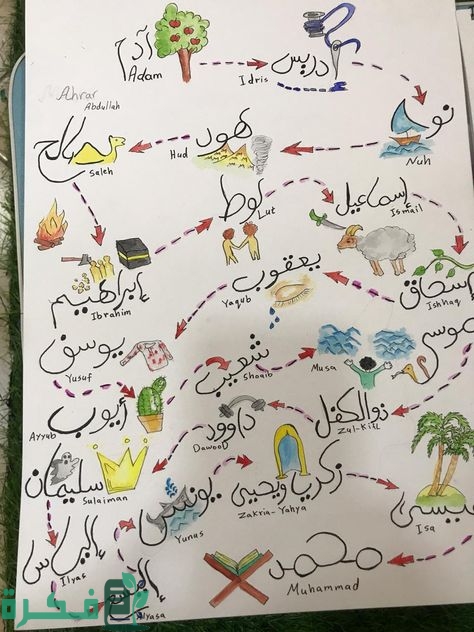 آدم
Adam
إدريس
Idris
Ahrar
Abdullah
نوح
Nuh
هود
Hud
صالح
Saleh
إبراهيم
Ibrahim
لوط
Lut
إسماعيل
Ismail
إسحاق
Ishhaq
يعقوب
Yaqub
يوسف
Yusuf
أيوب
Ayyab
شعيب
Shoaib
موسى
Musa
ذو الكفل
Zul-Kifl
داوود
Dawood
سليمان
Sulaiman
إلياس
Ilyas
اليسع
Alyasa
يونس
Yunas
زكريا ويحيى
Zakria-Yahya
عيسى
Isa
محمد
Muhammad
فكرة